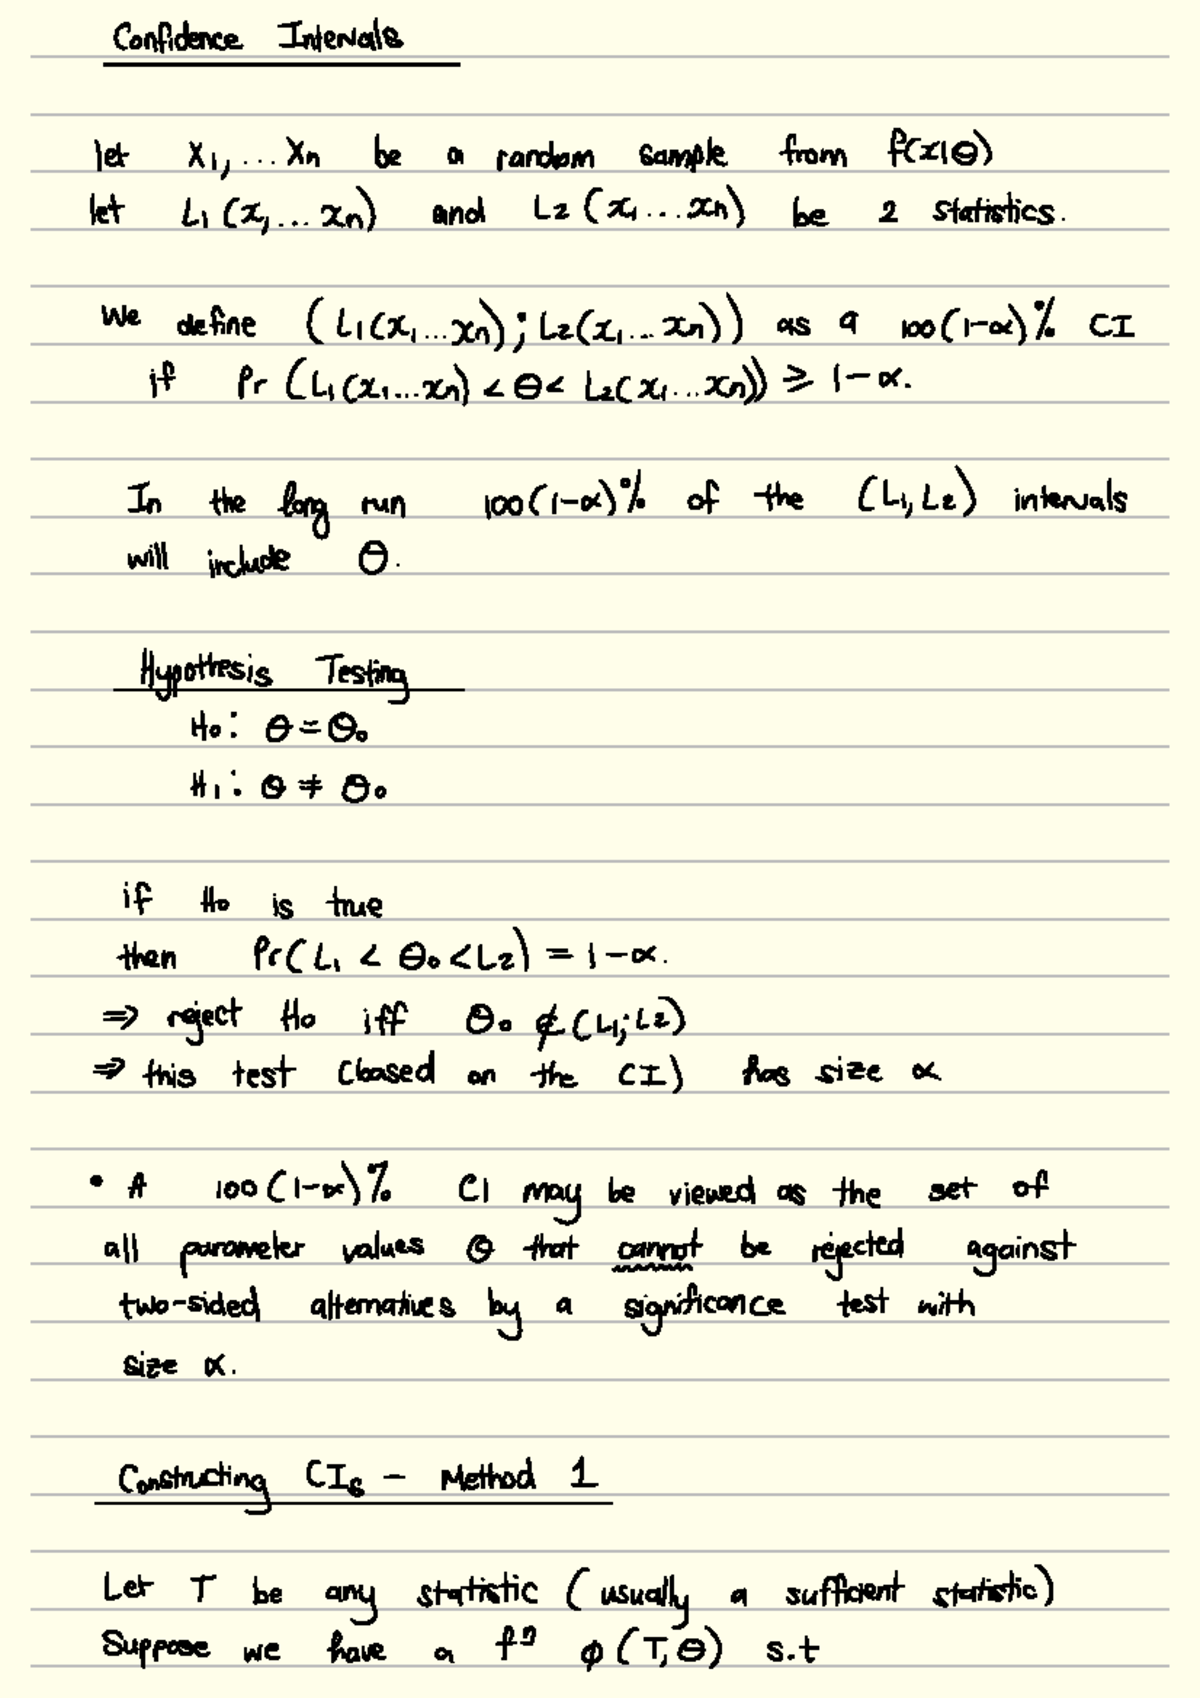 Confidence Intervals
let X₁,...Xn be a random sample from f(x|θ)
let L₁(x₁...xn) and L₂(x₁...xn) be 2 statistics.
We define (L₁(x₁...xn); L₂(x₁...xn)) as a 100(1-α)% CI
if Pr (L₁(x₁...xn) < θ < L₂(x₁...xn)) ⩾ 1-α.
In the long run 100(1-α)% of the (L₁,L₂) intervals
will include θ.
Hypothesis Testing
H₀: θ = θ₀
H₁: θ ≠ θ₀
if H₀ is true
then Pr(L₁ < θ₀ < L₂) = 1-α.
⇒ reject H₀ iff θ₀ ∉ (L₁;L₂)
⇒ this test (based on the CI) has size α
• A 100(1-α)% CI may be viewed as the set of
all parameter values θ that cannot be rejected against
two-sided alternatives by a significance test with
size α.
Constructing CIs - Method 1
Let T be any statistic (usually a sufficient statistic)
Suppose we have a fⁿ φ(T,θ) s.t